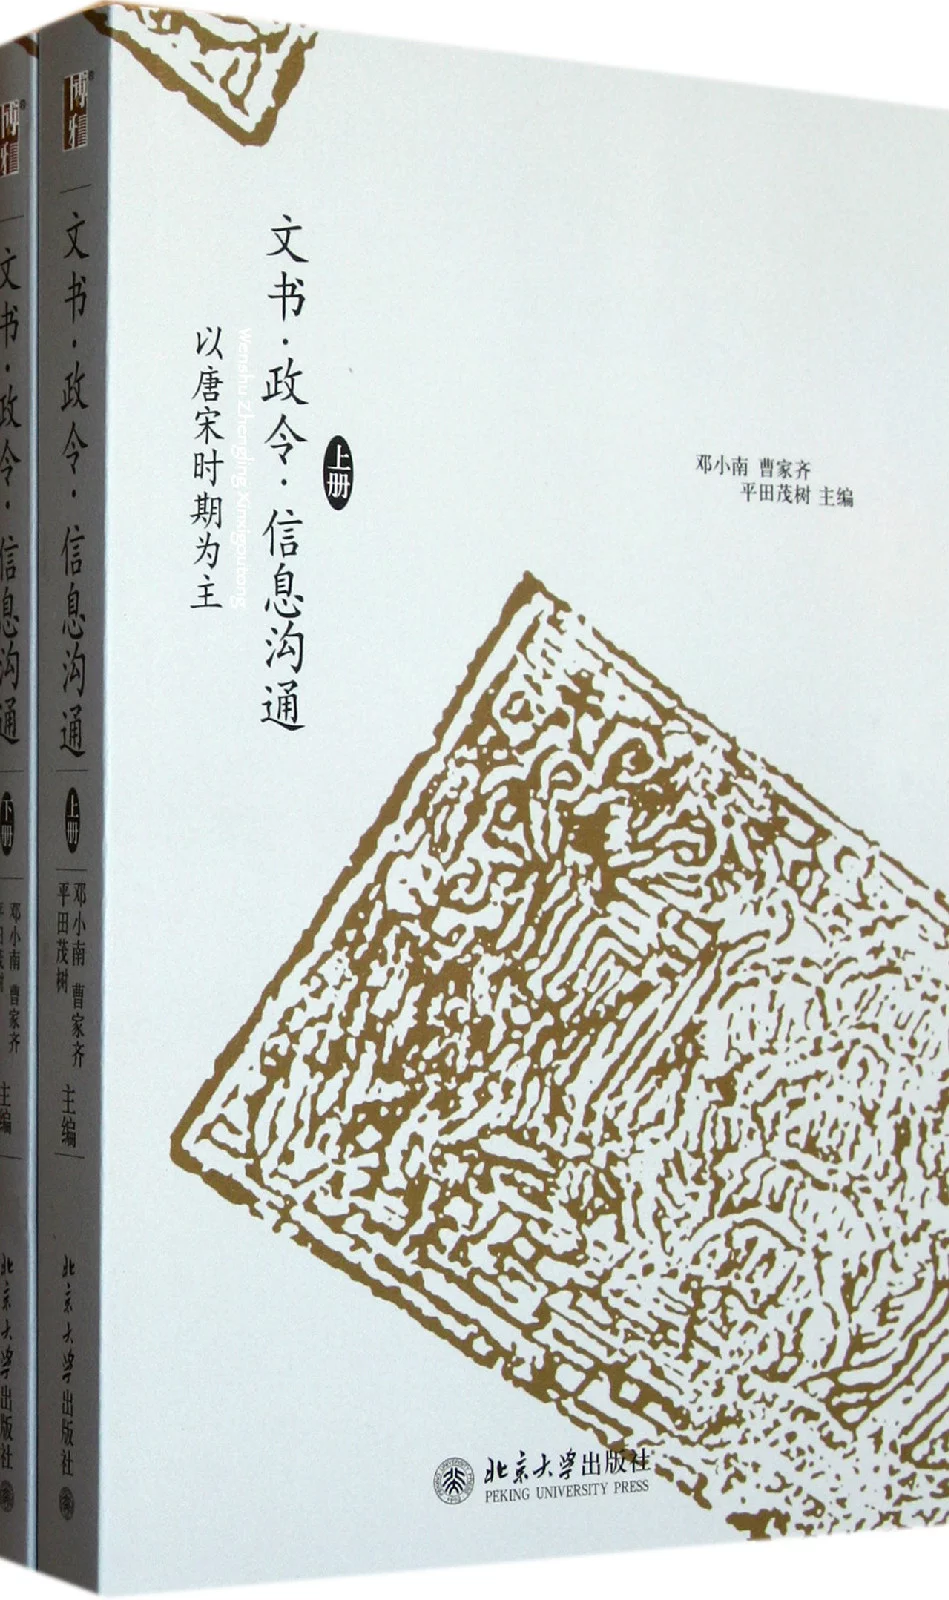 文书·政令·信息沟通
以唐宋时期为主
上册
邓小南 曹家齐
平田茂树 主编
北京大学出版社
PEKING UNIVERSITY PRESS
博雅
文书·政令·信息沟通
上册
邓小南 曹家齐
平田茂树
主编
北京大学出版社
博雅
文书·政令·信息沟通
下册
邓小南 曹家齐
平田茂树
主编
北京大学出版社